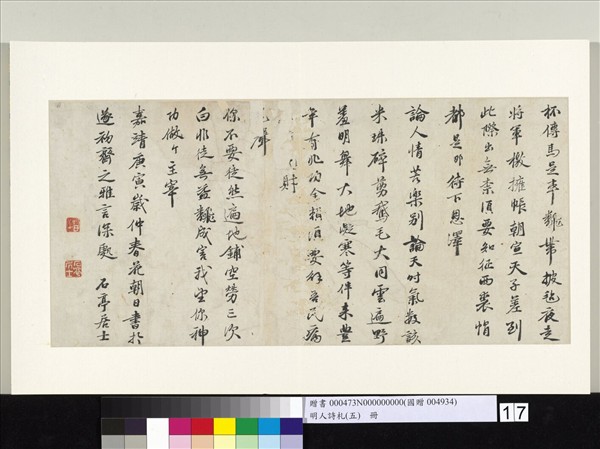 杯傅馬足車難帶披氈夜走
將軍檄擁帳朝宣天子差到
此際出無柰須要知征西裳悄
都是即待下恩澤
論人情苦樂別論天時氣數該
米珠碎剪鵞毛大同雲遍野
羞明舞大地凝寒等伴來豐
年有兆均全賴須要解吾民病
財
犀
你不要徒然遍地鋪空勞三次
白非徒無益難成實我望你神
功做个主宰
嘉靖庚寅歲仲春花朝日書於
遂初齋之雅言深處 石亭居士
贈書 000473N000000000(國贈 004934)
明人詩札(五) 冊
17